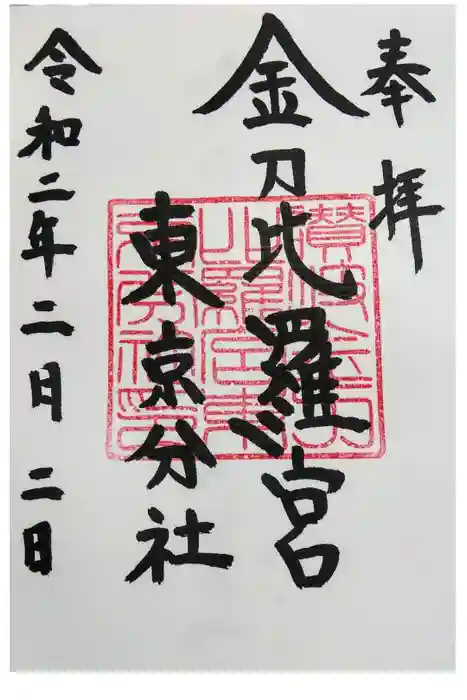 奉拝
金刀比羅宮
東京分社
令和二年二月二日
讃岐金刀
比羅宮東
京分社印